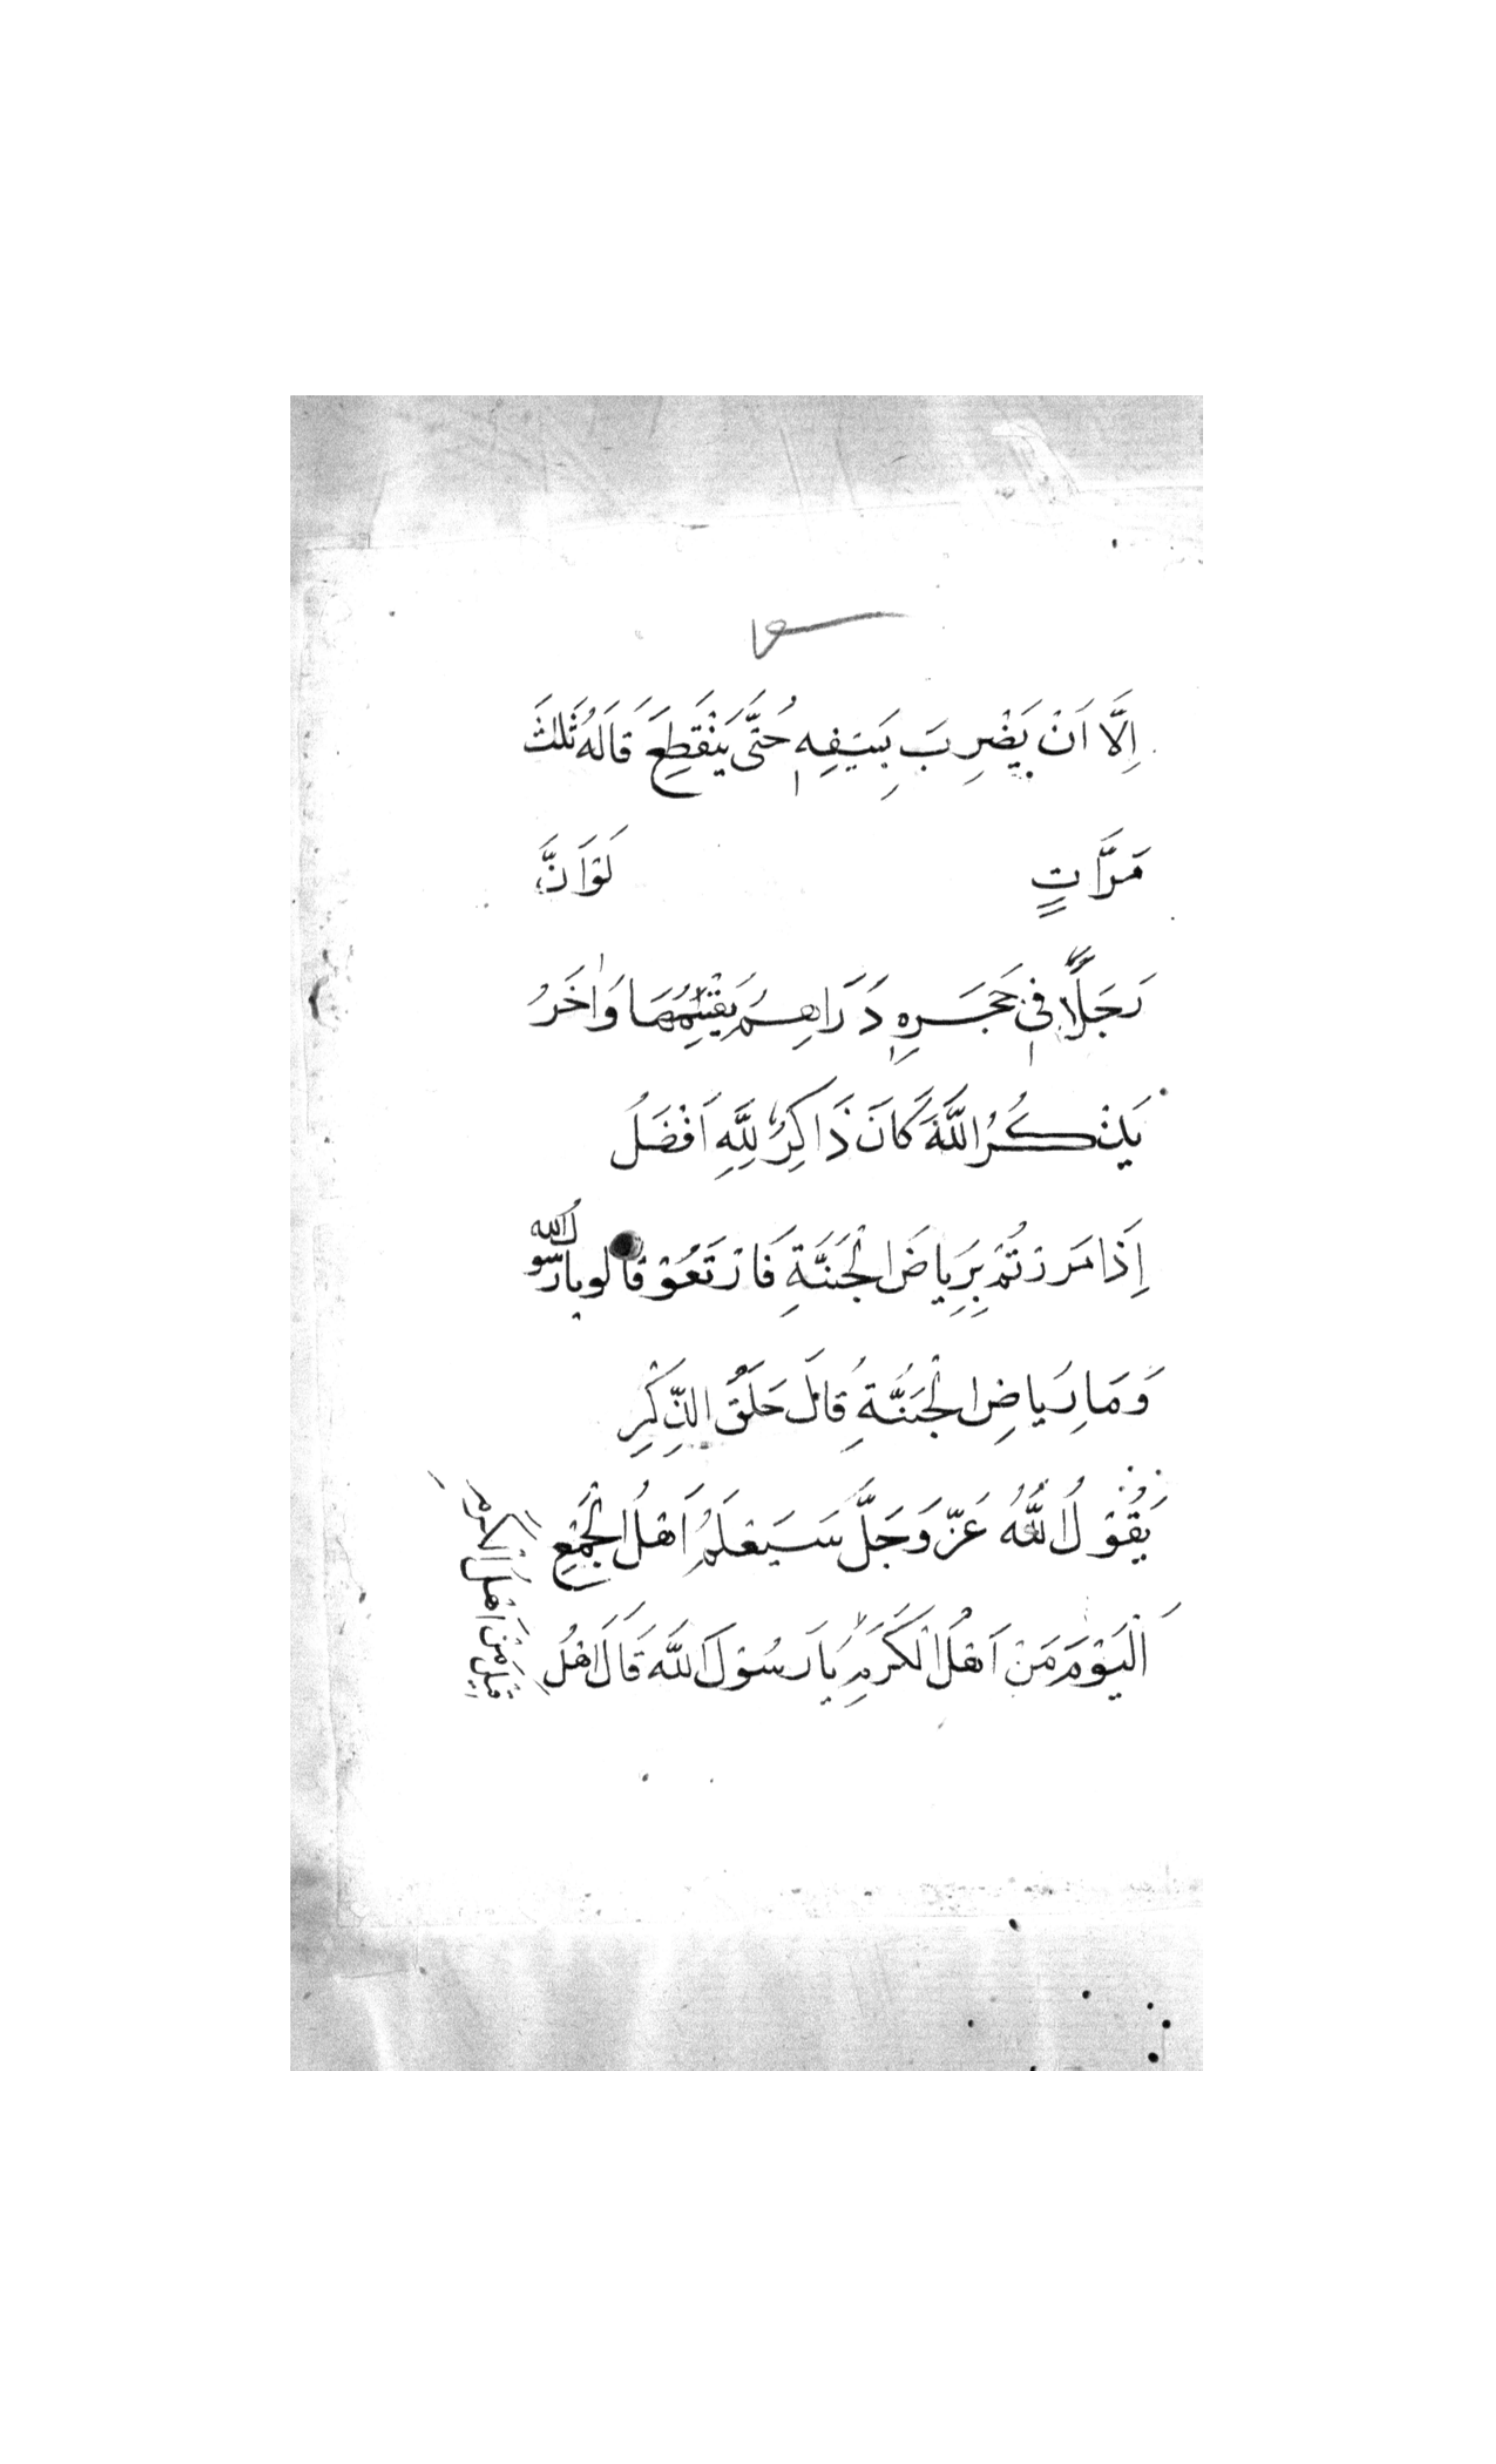 اِلَّا اَنْ يَضْرِبَ بِسَيْفِهٖ حُتَّى يَنْقَطِعَ قَالَهُ ثَلٰثَ
مَرَّاتٍ لَوْاَنَّ
رَجَلًا فِي حَجَرِهٖ دَرَاهِمُ يَقْسِمُهَا وَاٰخَرُ
يَذْكُرُ اللَّهَ كَانَ ذَاكِرُ لِلَّهِ اَفْضَلُ
اِذَا مَرَرْتُمْ بِرِيَاضَ الْجَنَّةِ فَارْتَعُوْ قالو يارسو لالله
وَمَا رِيَاضِ الْجَنَّةِ قَالَ حَلَقُ الذِّكْرِ
يَقُوْلُ اللَّهُ عَزَّ وَجَلَّ سَيَعْلَمُ اَهْلُ الْجَمْعِ
اَلْيَوْمَ مَنْ اَهْلُ الْكَرَمِ يَا رَسُوْلَ اللَّه قَالَ اَهْلُ
قِيلَ مَنْ اَهْلُ الْكَرَمِ